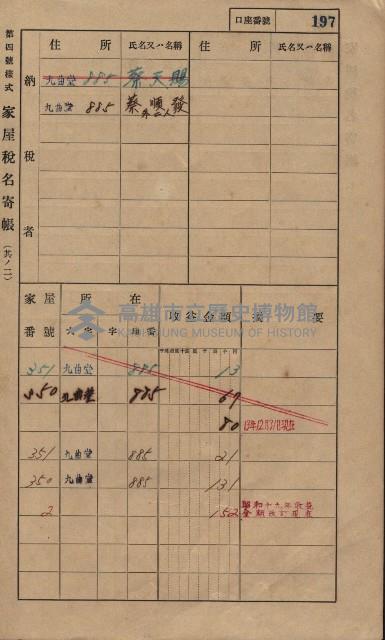 口座番號 197
第四號樣式 家屋稅名寄帳 (其ノ二)
納稅者
住所 氏名又ハ名稱 住所 氏名又ハ名稱
九曲堂 885 蔡天賜
九曲堂 885 蔡順發
外二人
家屋番號 所在 收益金額 摘要
大字 字 地番
高雄市立歷史博物館
KAOHSIUNG MUSEUM OF HISTORY
351 九曲堂 885 13
350 九曲堂 885 67
80 13年12月31日現在
351 九曲堂 885 21
350 九曲堂 885 131
2 152 昭和十九年收益
金額改訂